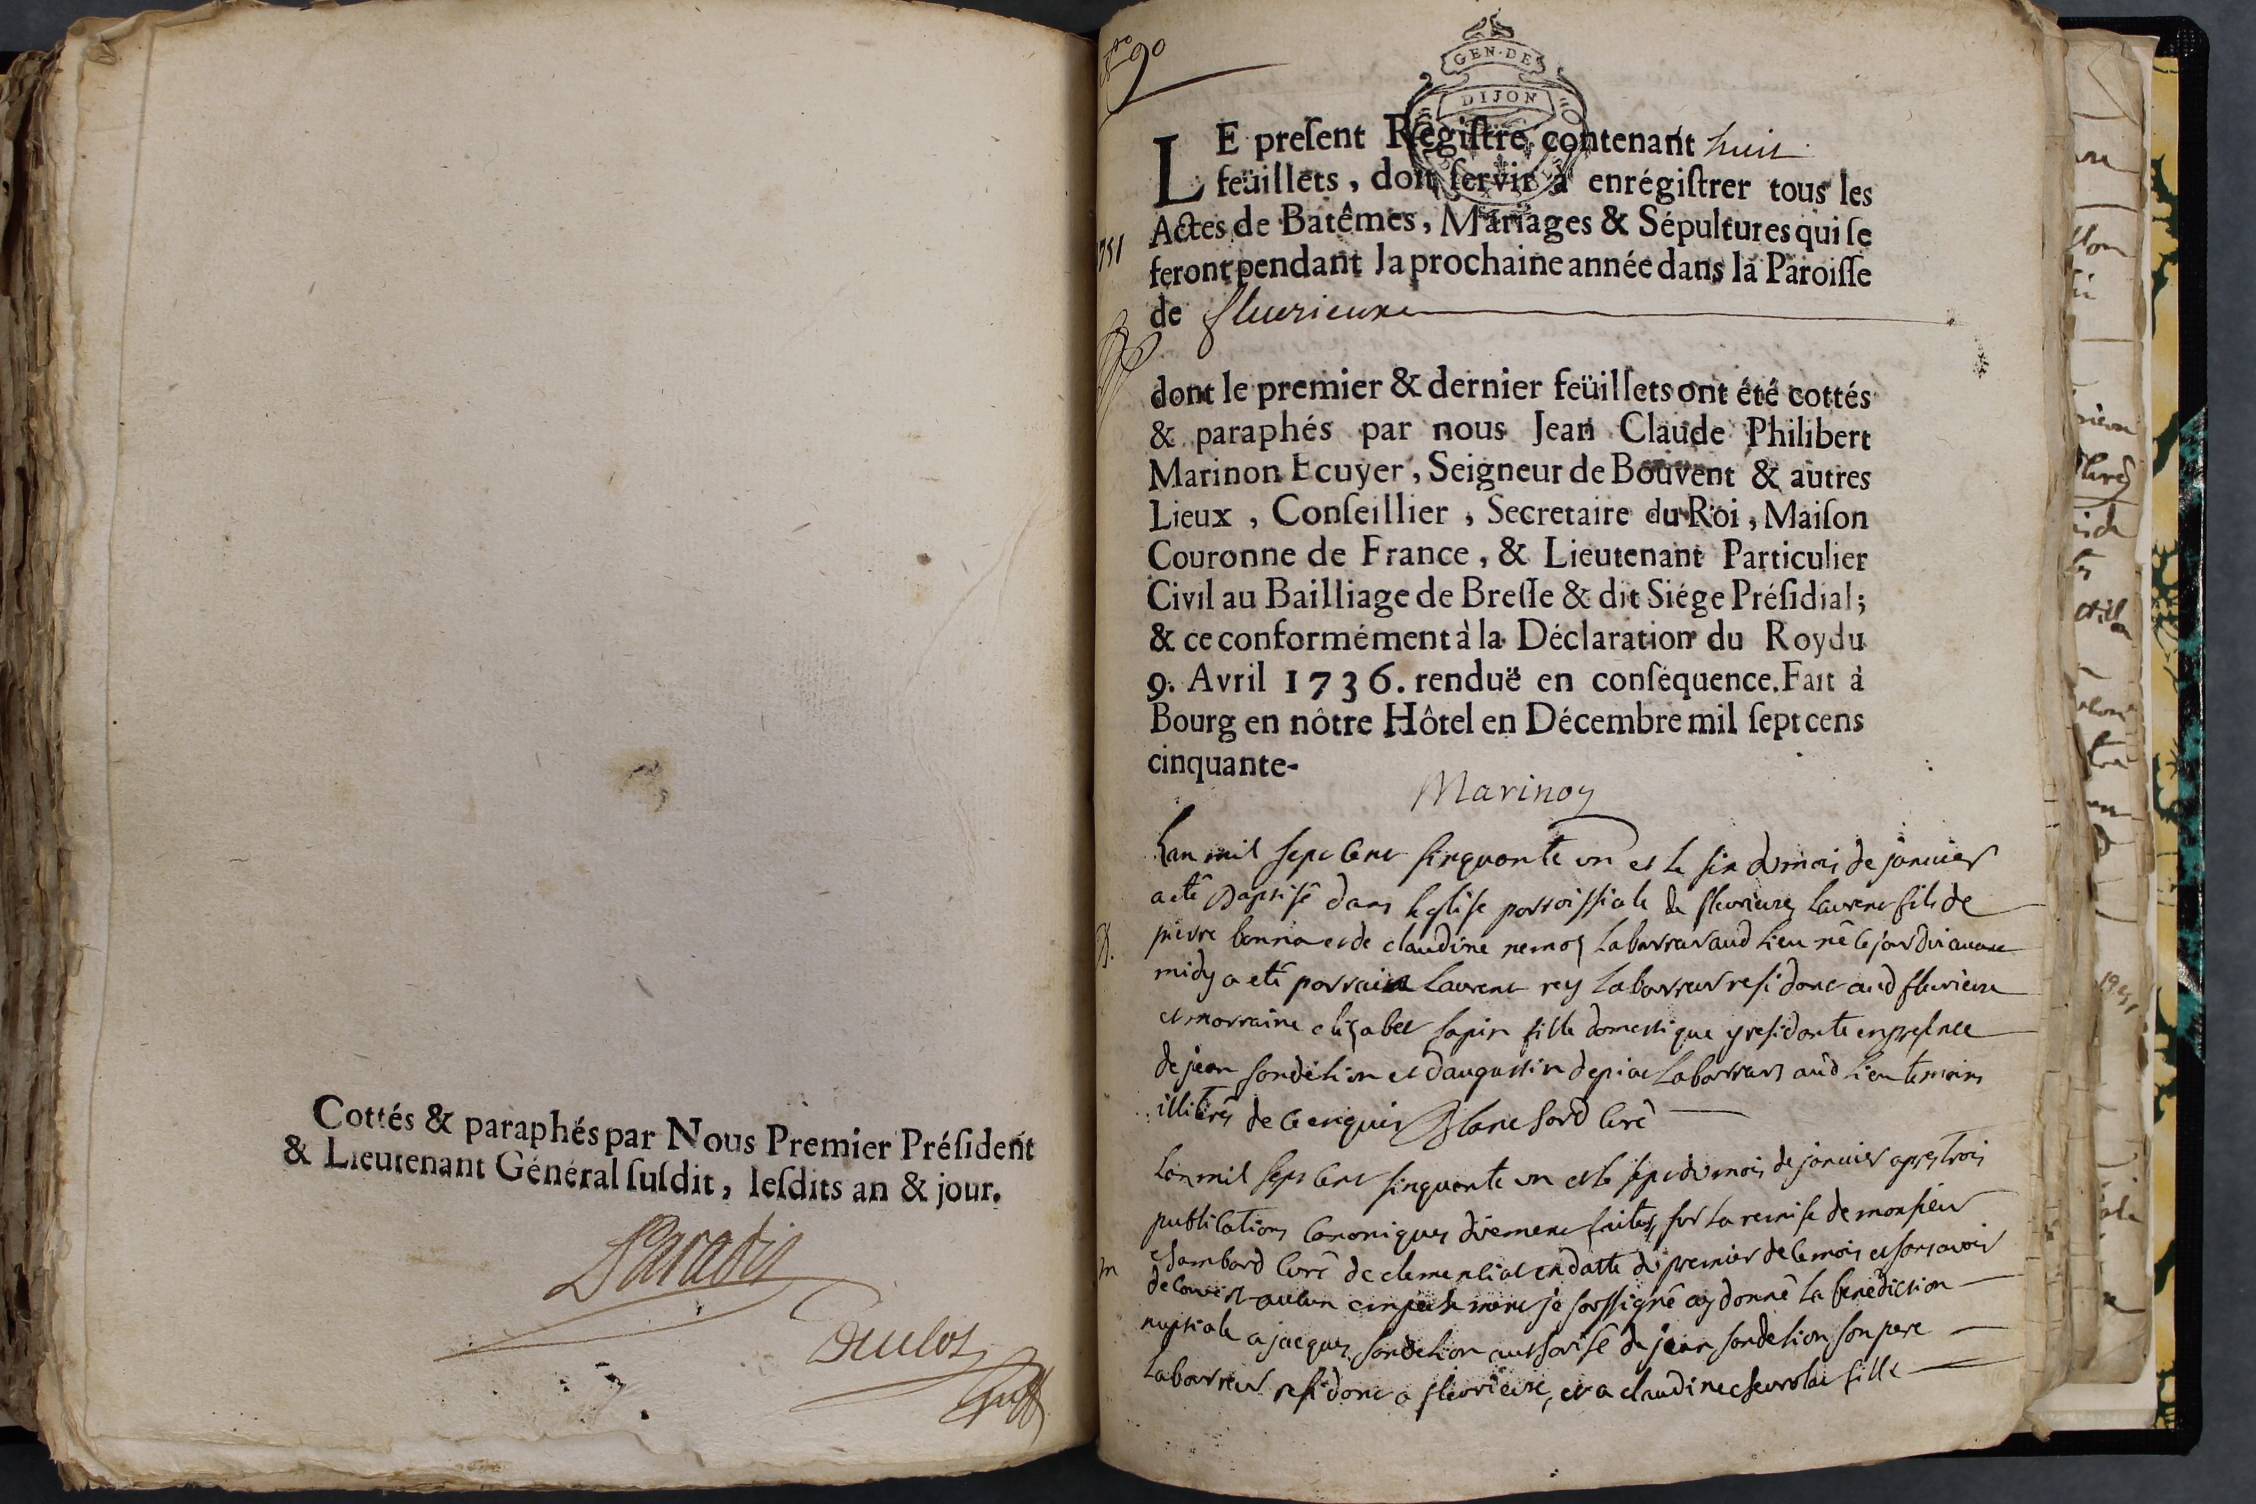 Cottés & paraphés par Nous Premier Préſident
& Lieutenant Général ſuſdit, leſdits an & jour.
Paradis
Duclos
Greff
90
GEN. DE
DIJON
LE preſent Régiſtre contenant huit
feüillets, doit ſervir à enrégiſtrer tous les
Actes de Batêmes, Mariages & Sépultures qui ſe
1751
feront pendant la prochaine année dans la Paroiſſe
de fleurieux
dont le premier & dernier feüillets ont été cottés
& paraphés par nous Jean Claude Philibert
Marinon Ecuyer, Seigneur de Bouvent & autres
Lieux, Conſeillier, Secretaire du Roi, Maiſon
Couronne de France, & Lieutenant Particulier
Civil au Bailliage de Breſſe & dit Siége Préſidial;
& ce conformément à la Déclaration du Roy du
9. Avril 1736. renduë en conſéquence. Fait à
Bourg en nôtre Hôtel en Décembre mil ſept cens
cinquante-
Marinon
Lan mil sept cent sinquante un et le six du mois de janvier
a eté Baptisé dans leglise parroissiale de fleurieux laurent fils de
B.
pierre bonna et de claudine remon laboureur aud lieu né ce jourdui avant
midy a eté parrain laurent rey laboureur residant aud fleurieux
et marraine elizabet sapin fille domestique y residante en presence
de jean sondelion et daugustin depiat laboureurs aud lieu temoins
illiterés de ce enquis Blanchard curé
Lan mil sept cent sinquante un et le sept du mois de janvier apres trois
publications canoniques duement faites, sur la remise de monsieur
chambard curé de clemencia en datte du premier de ce mois et sans avoir
m
decouvert aucun empechement je soussigné ay donné la benediction
nuptiale a jacques sondelion authorisé de jean sondelion son pere
laboureur residant a fleurieux, et a claudine chevrolat fille